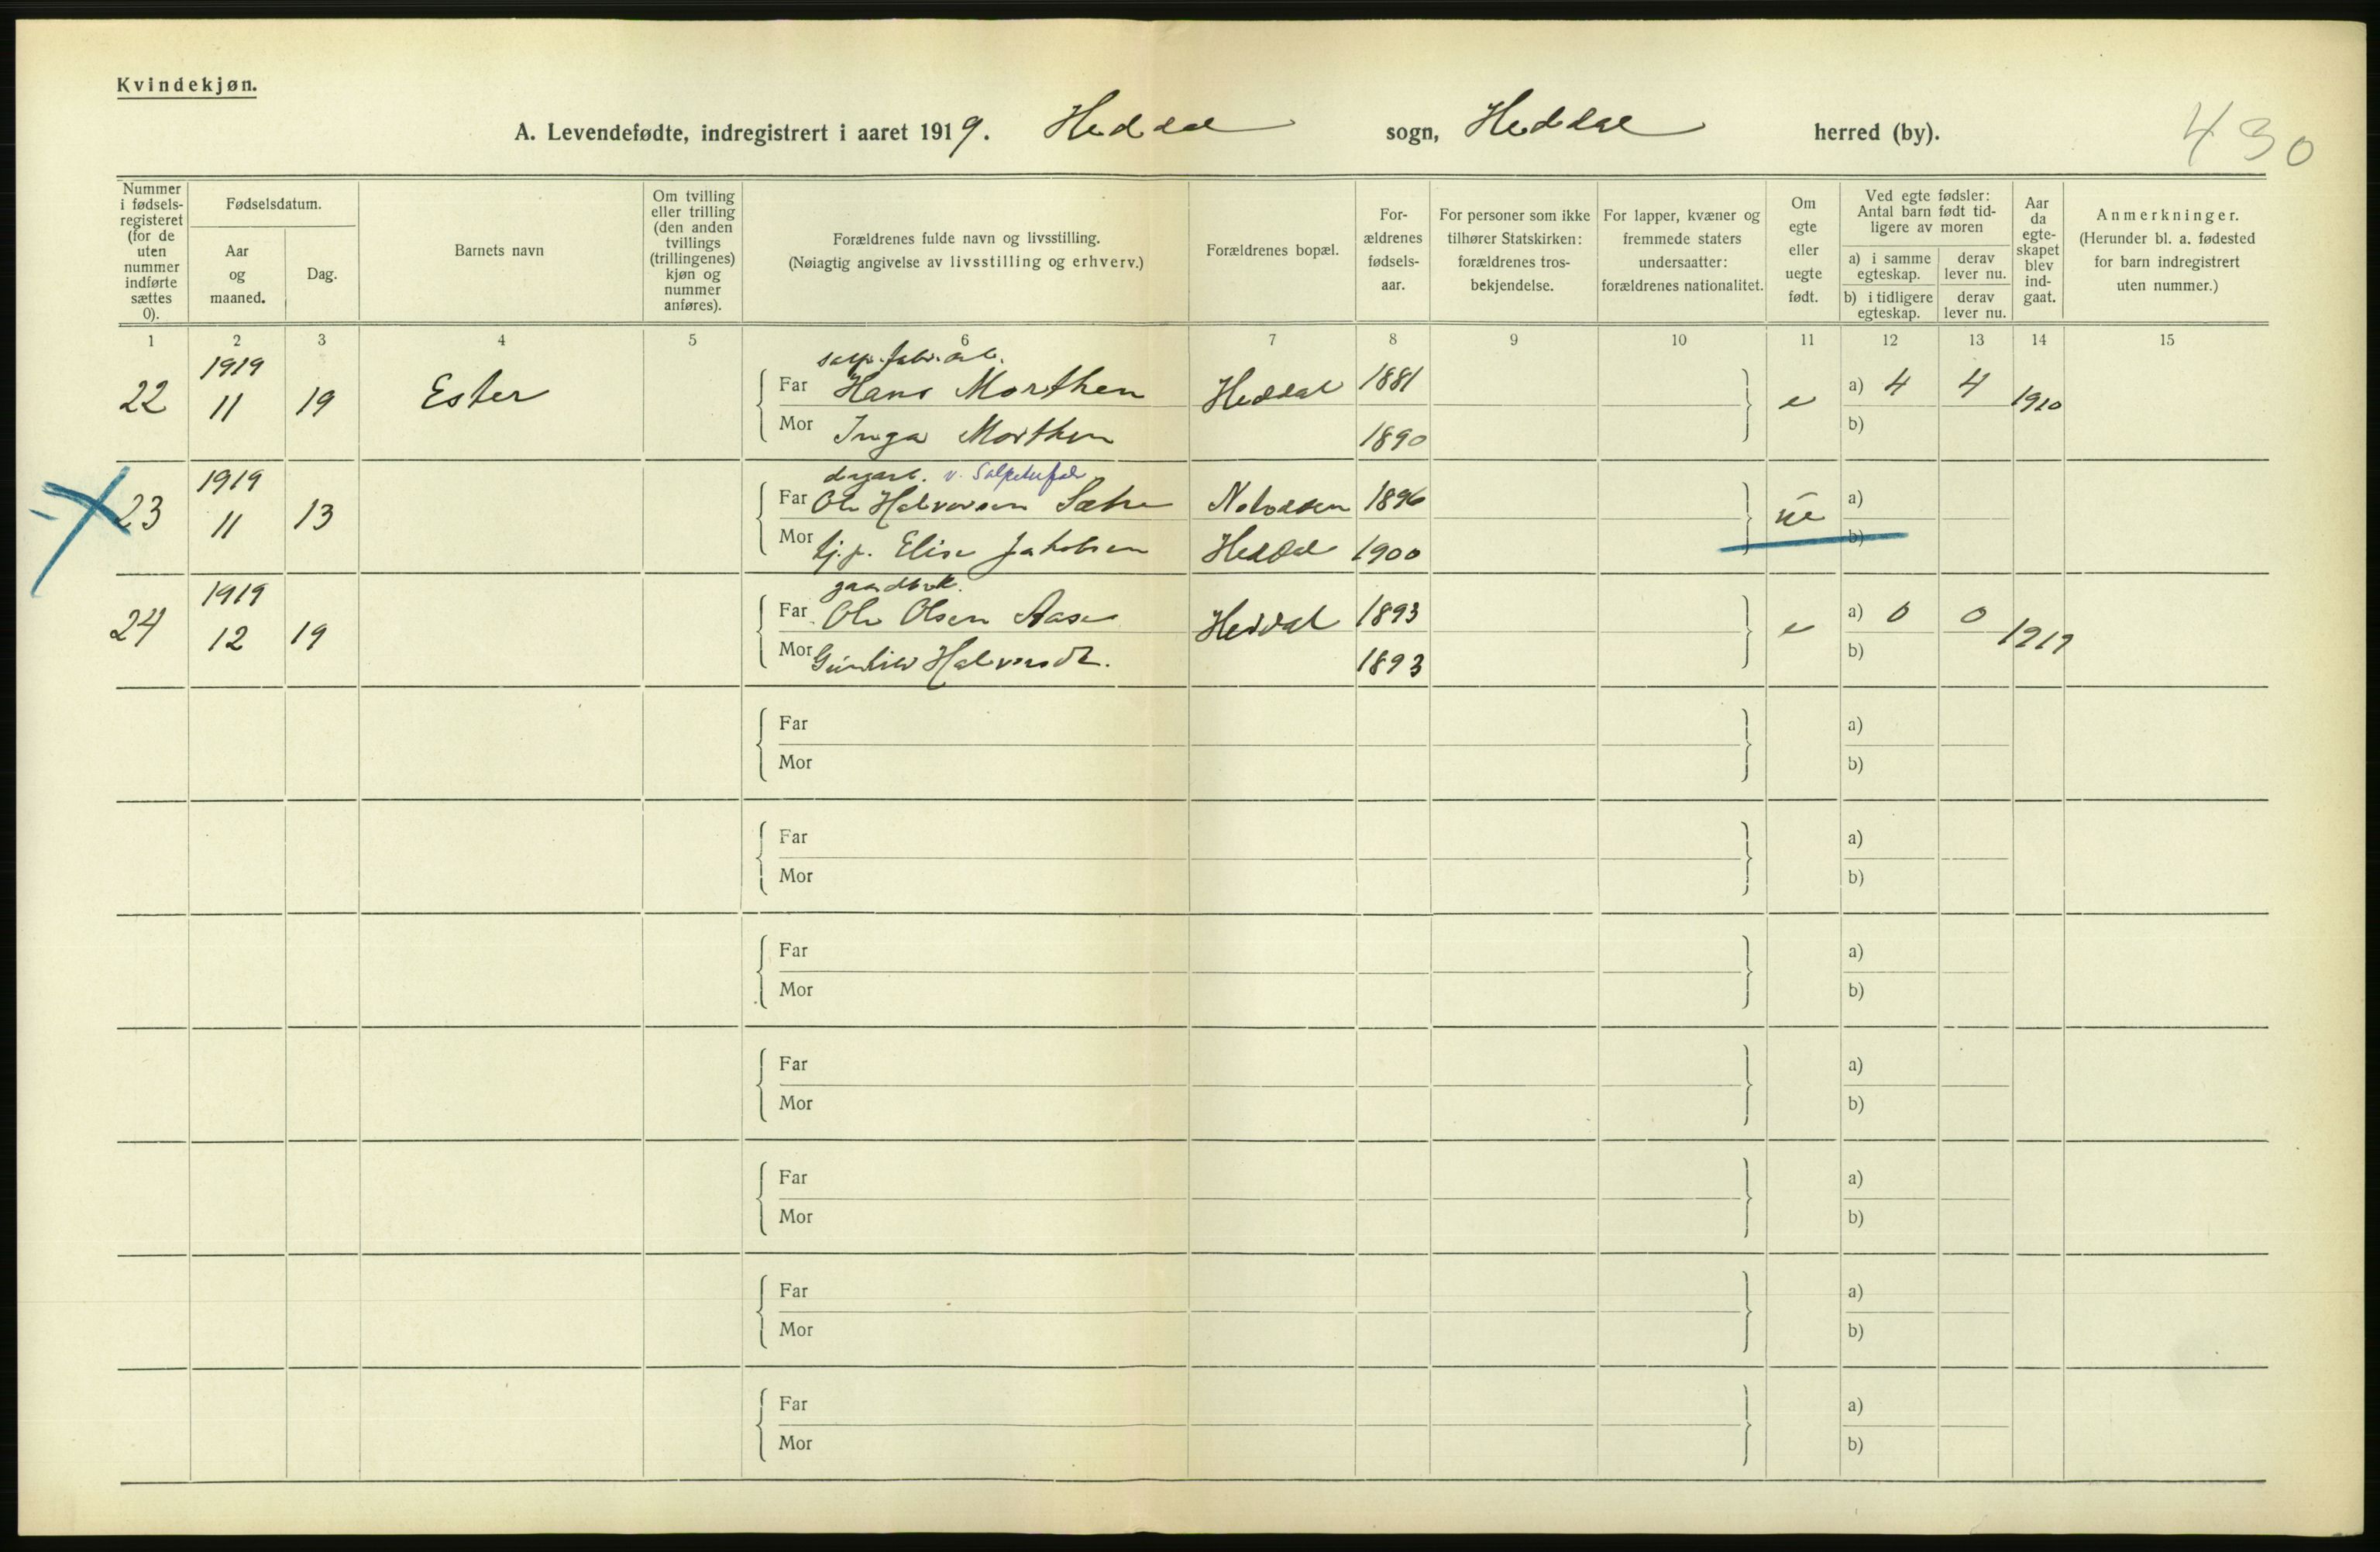 Kvindekjøn.
A. Levendefødte, indregistrert i aaret 1919. Heddal sogn, Heddal herred (by).
430
Nummer i fødsels-registeret (for de uten nummer indførte sættes 0).
Fødselsdatum.
Aar og maaned.
Dag.
Barnets navn
Om tvilling eller trilling (den anden tvillings (trillingenes) kjøn og nummer anføres).
Forældrenes fulde navn og livsstilling.
(Nøiagtig angivelse av livsstilling og erhverv.)
Forældrenes bopæl.
For-ældrenes fødsels-aar.
For personer som ikke tilhører Statskirken: forældrenes tros-bekjendelse.
For lapper, kvæner og fremmede staters undersaatter: forældrenes nationalitet.
Om egte eller uegte født.
Ved egte fødsler: Antal barn født tid-ligere av moren
a) i samme egteskap.
derav lever nu.
b) i tidligere egteskap.
derav lever nu.
Aar da egte-skapet blev ind-gaat.
Anmerkninger.
(Herunder bl. a. fødested for barn indregistrert uten nummer.)
1 2 3 4 5 6 7 8 9 10 11 12 13 14 15
salp. fabr. arb.
22 1919 11 19 Ester Far Hans Morthen Heddal 1881 e a) 4 4 1910
Mor Inga Morthen 1890 b)
dagarb. v. Salpeterfabr
23 1919 11 13 Far Ole Halvorsen Sætre Notodden 1896 ue a)
Mor tj.p. Elise Jakobsen Heddal 1900 b)
gaardbruk.
24 1919 12 19 Far Ole Olsen Aase Heddal 1893 e a) 0 0 1917
Mor Gunhild Halvorsdt. 1893 b)
Far a)
Mor b)
Far a)
Mor b)
Far a)
Mor b)
Far a)
Mor b)
Far a)
Mor b)
Far a)
Mor b)
Far a)
Mor b)